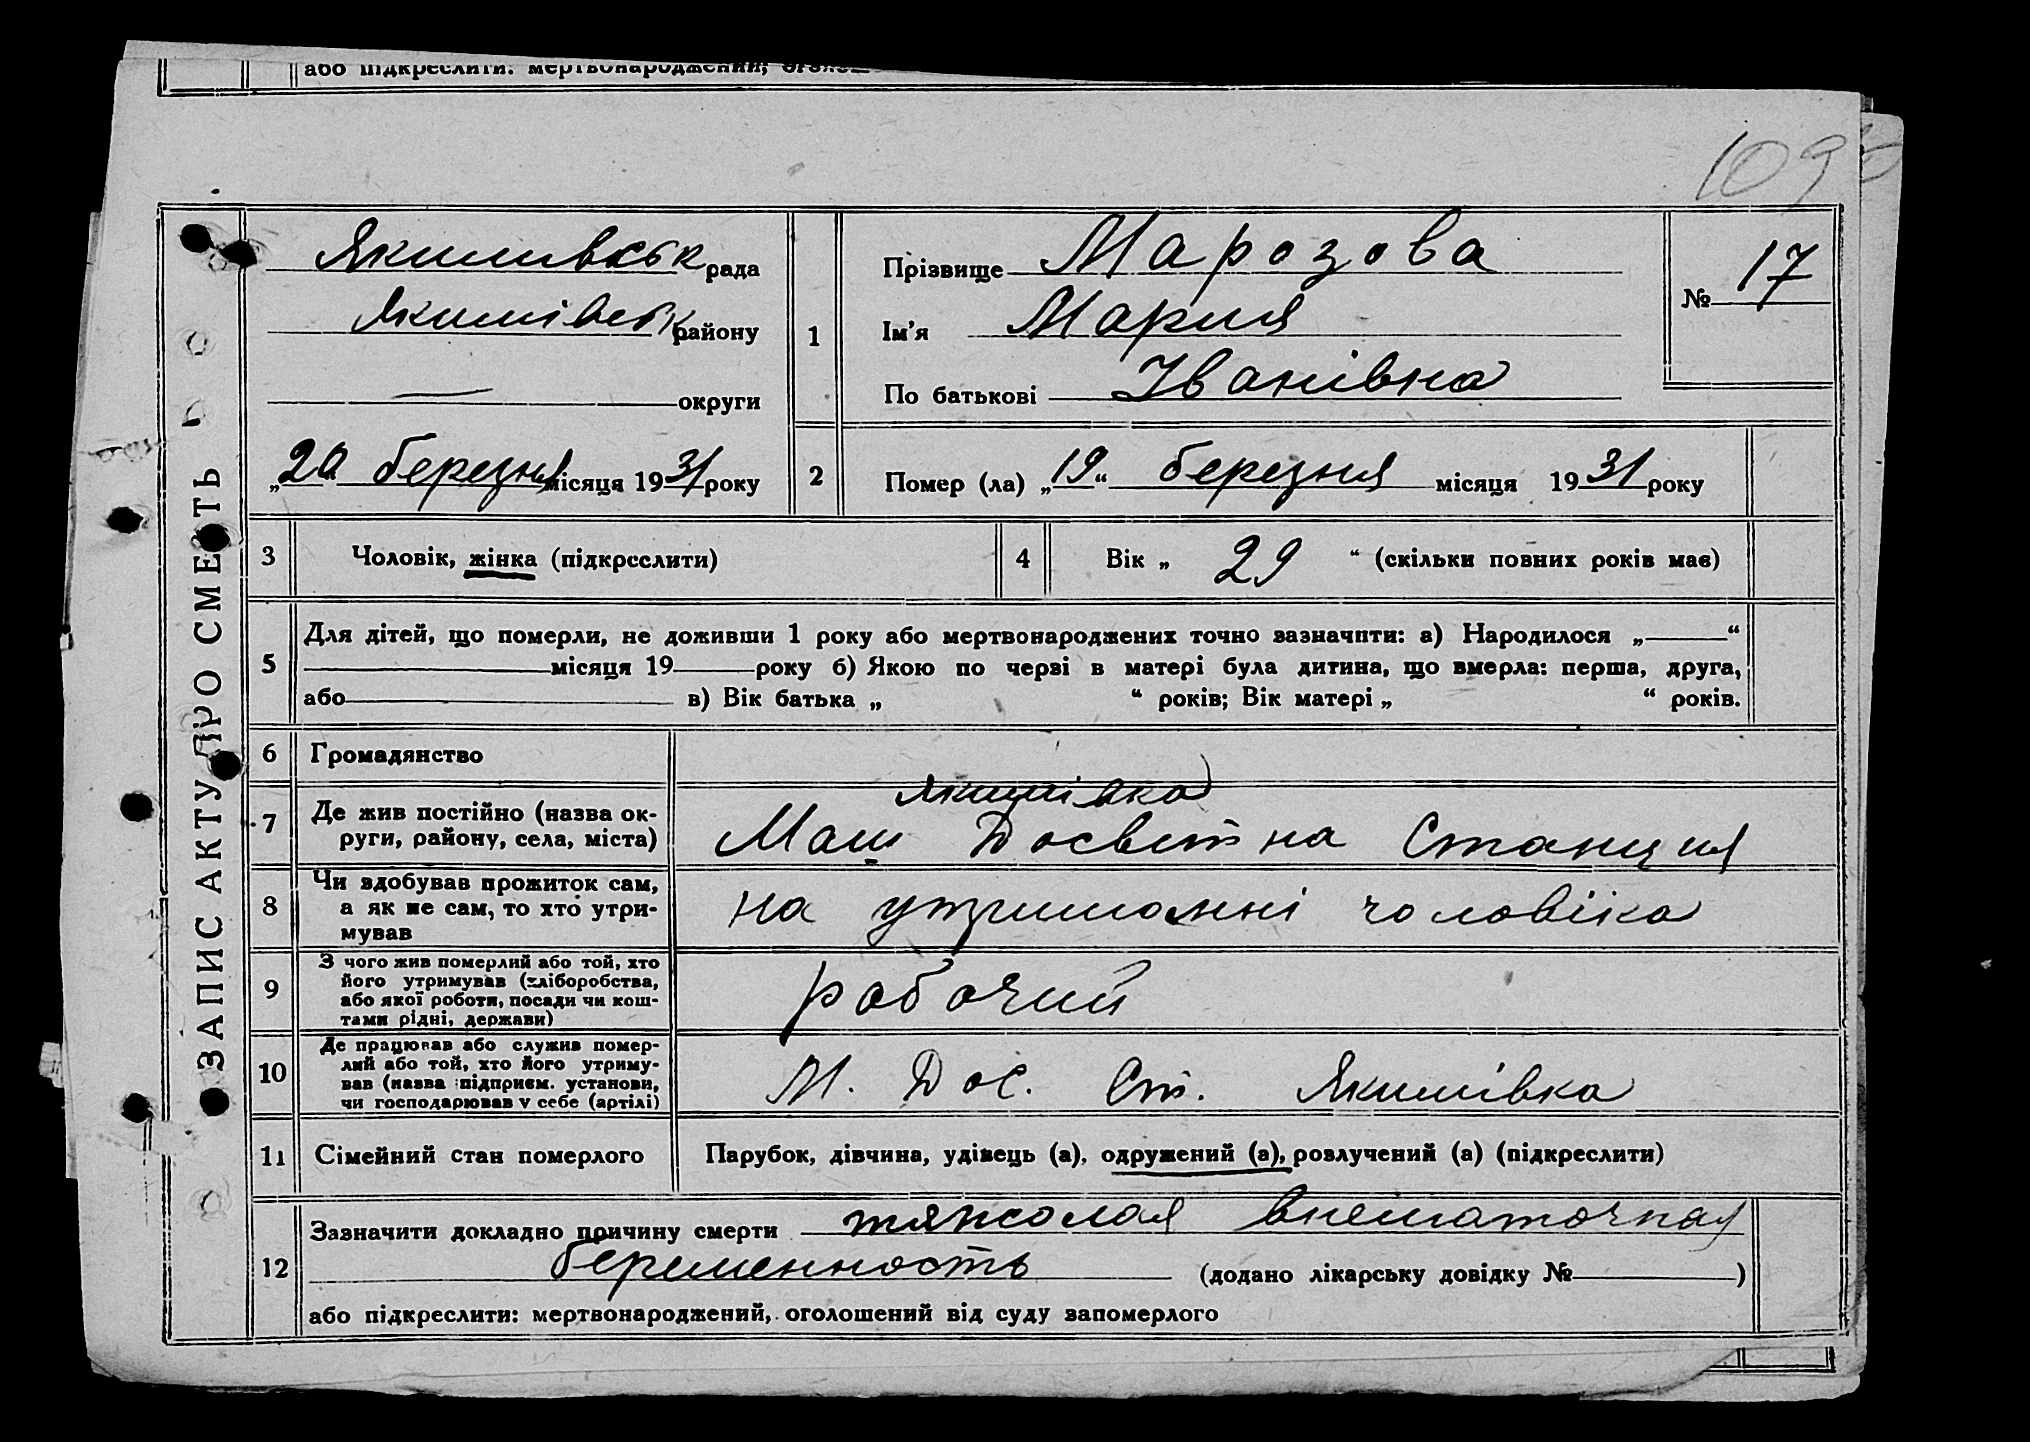 або підкреслити: мертвонароджений,
109
ЗАПИС АКТУ ПРО СМЕРТЬ
Якимівськ рада
Якимівськ району
округи
„20 березня місяця 1931 року
1
Прізвище Марозова
Ім'я Мария
По батькові Іванівна
№ 17
2
Помер (ла) „19“ березня місяця 1931 року
3
Чоловік, жінка (підкреслити)
4
Вік „ 29 “ (скільки повних років має)
5
Для дітей, що померли, не доживши 1 року або мертвонароджених точно зазначити: а) Народилося „ “
місяця 19 року б) Якою по черві в матері була дитина, що вмерла: перша, друга,
або в) Вік батька „ “ років; Вік матері „ “ років.
6
Громадянство
7
Де жив постійно (назва ок-
руги, району, села, міста)
Якимівка
Маш Досвітна Станция
8
Чи здобував прожиток сам,
а як не сам, то хто утри-
мував
на утриманні чоловіка
9
З чого жив померлий або той, хто
його утримував (хліборобства,
або якої роботи, посади чи кош-
тами рідні, держави)
рабочий
10
Де працював або служив помер-
лий або той, хто його утриму-
вав (назва підприєм. установи,
чи господарював у себе (артілі)
М. Дос. Ст. Якимівка
11
Сімейний стан померлого
Парубок, дівчина, удівець (а), одружений (а), розлучений (а) (підкреслити)
12
Зазначити докладно причину смерти тяжолая внематочная
беременность (додано лікарську довідку № )
або підкреслити: мертвонароджений, оголошений від суду запомерлого